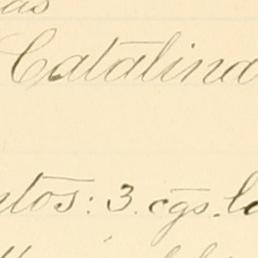 as
Catalina
ntos: 3. cgs. la